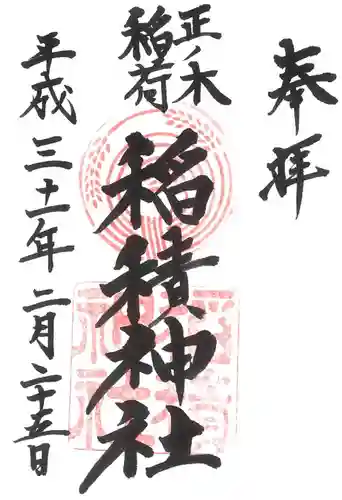 奉拝
正ノ木
稲荷
稲積神社
平成三十一年二月二十五日